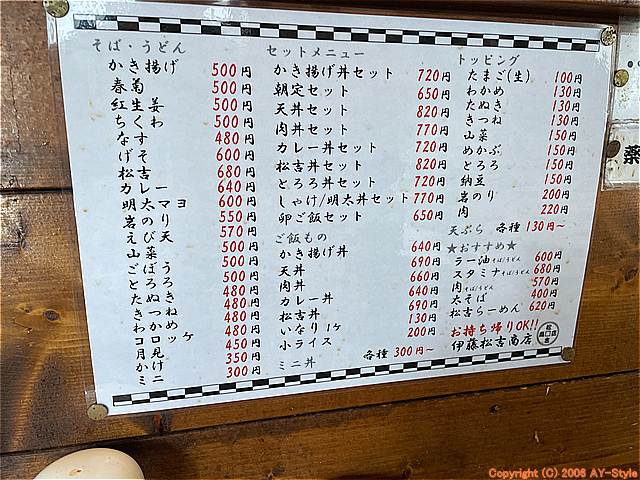 そば・うどん
かき揚げ 500円
春菊 500円
紅生姜 500円
ちくわ 500円
なす 480円
げそ 600円
松吉 680円
カレー 640円
明太マヨ 600円
岩のり 550円
えび天 570円
山菜 500円
ごぼう 500円
とろろ 500円
たぬき 480円
きつね 480円
わかめ 480円
コロッケ 480円
月見 450円
かけ 350円
ミニ 300円
セットメニュー
かき揚げ丼セット 720円
朝定セット 650円
天丼セット 820円
肉丼セット 770円
カレー丼セット 720円
松吉丼セット 820円
とろろ丼セット 720円
しゃけ/明太丼セット 770円
卵ご飯セット 650円
ご飯もの
かき揚げ丼 640円
天丼 690円
肉丼 660円
カレー丼 640円
松吉丼 690円
いなり 1ヶ 130円
小ライス 200円
ミニ丼 各種 300円～
トッピング
たまご(生) 100円
わかめ 130円
たぬき 130円
きつね 130円
山菜 150円
めかぶ 150円
とろろ 150円
納豆 150円
岩のり 200円
肉 220円
天ぷら 各種 130円～
★おすすめ★
ラー油そば/うどん 600円
スタミナそば/うどん 680円
肉そば/うどん 570円
太そば 400円
松吉らーめん 620円
お持ち帰りOK!!
伊藤松吉商店
薬
Copyright (C) 2006 AY-Style